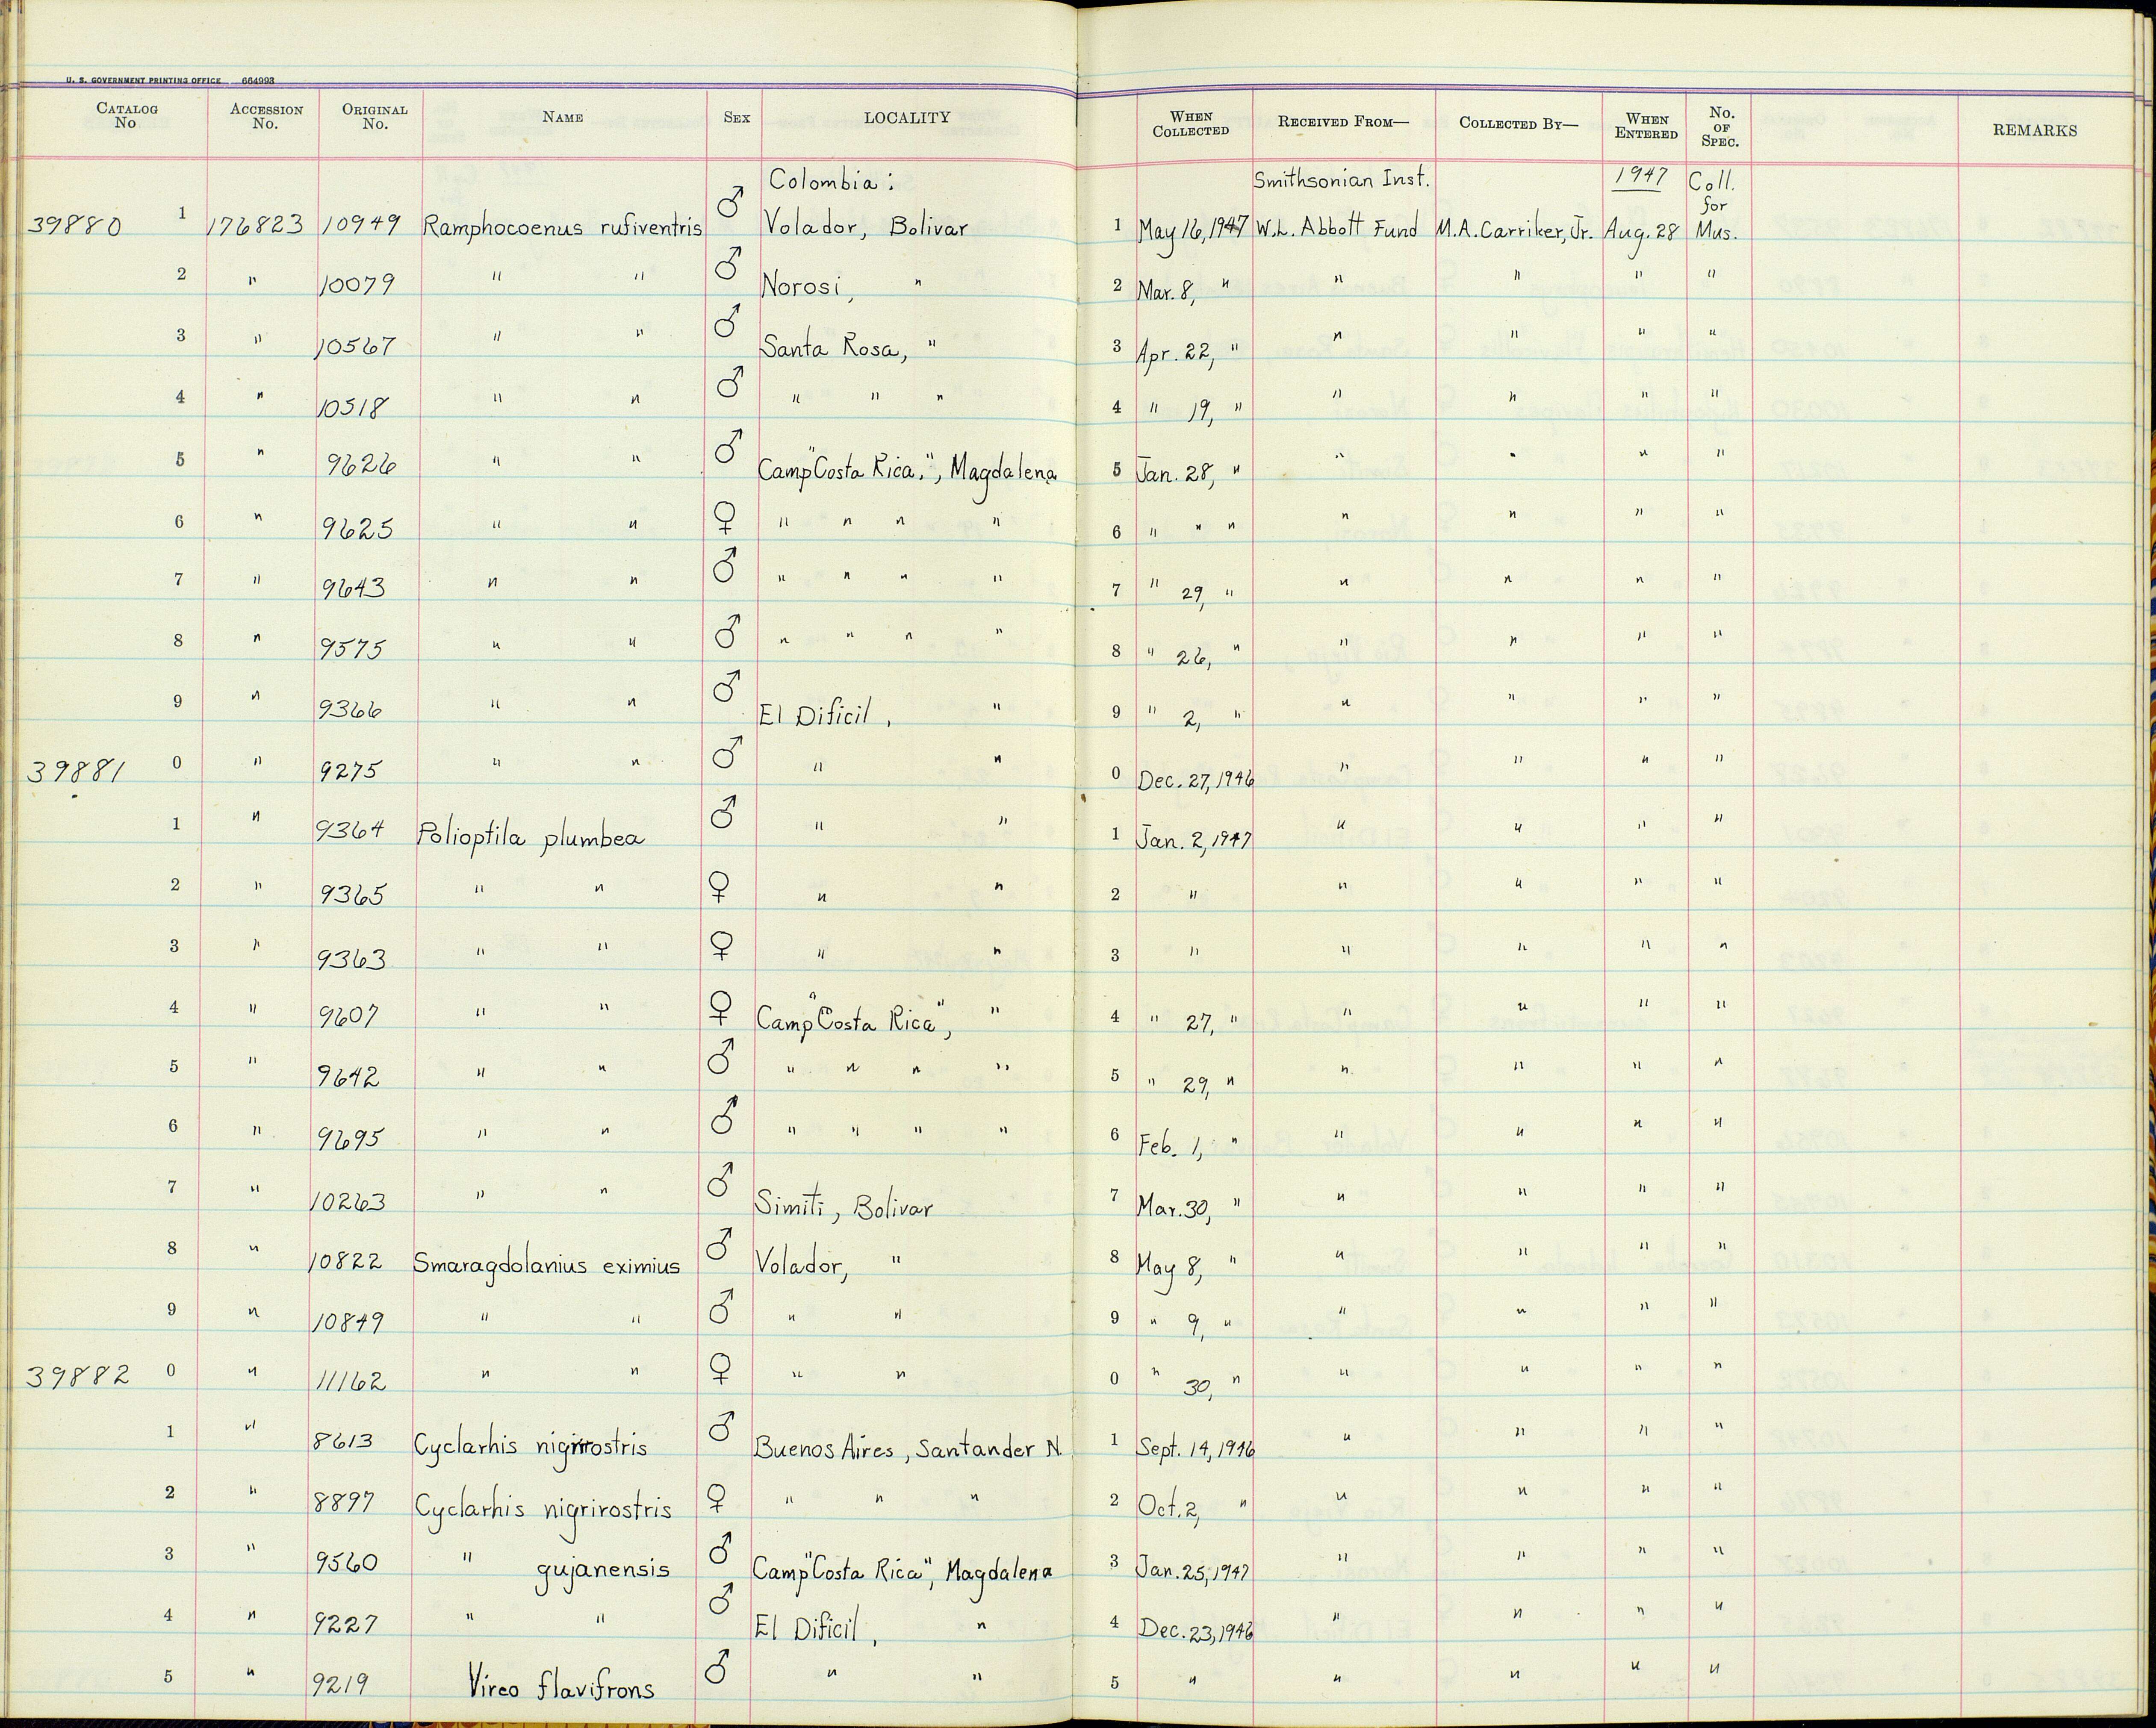 U. S. GOVERNMENT PRINTING OFFICE 664993
CATALOG No ACCESSION No. ORIGINAL No. NAME SEX LOCALITY WHEN COLLECTED RECEIVED FROM— COLLECTED BY— WHEN ENTERED No. OF SPEC. REMARKS
Colombia: Smithsonian Inst. 1947 Coll. for
39880 1 176823 10949 Ramphocoenus rufiventris ♂ Volador, Bolivar 1 May 16, 1947 W.L. Abbott Fund M.A. Carriker, Jr. Aug. 28 Mus.
2 " 10079 " " ♂ Norosi, " 2 Mar. 8, " " " " "
3 " 10567 " " ♂ Santa Rosa, " 3 Apr. 22, " " " " "
4 " 10518 " " ♂ " " " 4 " 19, " " " " "
5 " 9626 " " ♂ Camp "Costa Rica.", Magdalena 5 Jan. 28, " " " " "
6 " 9625 " " ♀ " " " " 6 " " " " " " "
7 " 9643 " " ♂ " " " " 7 " 29, " " " " "
8 " 9575 " " ♂ " " " " 8 " 26, " " " " "
9 " 9366 " " ♂ El Dificil, " 9 " 2, " " " " "
39881 0 " 9275 " " ♂ " " 0 Dec. 27, 1946 " " " "
1 " 9364 Polioptila plumbea ♂ " " 1 Jan. 2, 1947 " " " "
2 " 9365 " " ♀ " " 2 " " " " "
3 " 9363 " " ♀ " " 3 " " " " "
4 " 9607 " " ♀ Camp "Costa Rica", " 4 " 27, " " " " "
5 " 9642 " " ♂ " " " " 5 " 29, " " " " "
6 " 9695 " " ♂ " " " " 6 Feb. 1, " " " " "
7 " 10263 " " ♂ Simiti, Bolivar 7 Mar. 30, " " " " "
8 " 10822 Smaragdolanius eximius ♂ Volador, " 8 May 8, " " " " "
9 " 10849 " " ♂ " " 9 " 9, " " " " "
39882 0 " 11162 " " ♀ " " 0 " 30, " " " " "
1 " 8613 Cyclarhis nigrirostris ♂ Buenos Aires, Santander N. 1 Sept. 14, 1946 " " " "
2 " 8897 Cyclarhis nigrirostris ♀ " " " 2 Oct. 2, " " " " "
3 " 9560 " gujanensis ♂ Camp "Costa Rica", Magdalena 3 Jan. 25, 1947 " " " "
4 " 9227 " " ♂ El Dificil, " 4 Dec. 23, 1946 " " " "
5 " 9219 Vireo flavifrons ♂ " " 5 " " " " "